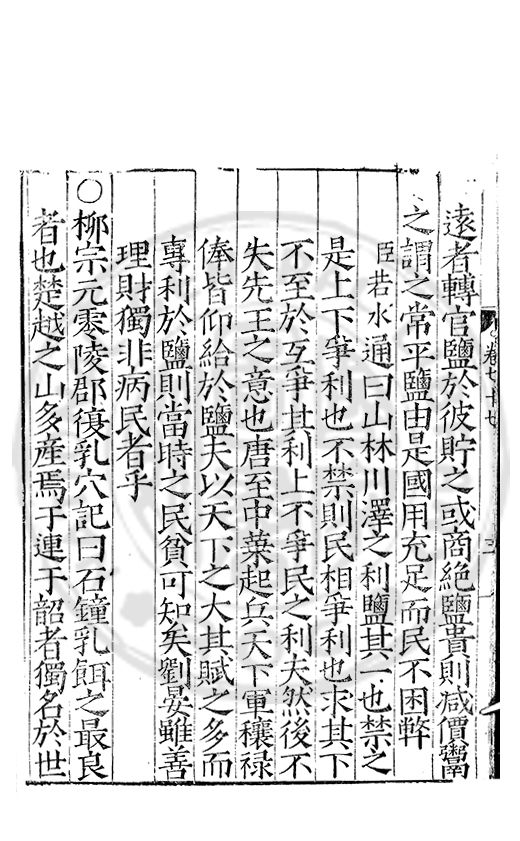 遠者轉官鹽於彼貯之或商絶鹽貴則减價鬻
之謂之常平鹽由是國用充足而民不困弊
臣若水通曰山林川澤之利鹽其一也禁之
是上下爭利也不禁則民相爭利也求其下
不至於互爭其利上不爭民之利夫然後不
失先王之意也唐至中葉起兵天下軍穰祿
俸皆仰給於鹽夫以天下之大其賦之多而
專利於鹽則當時之民貧可知矣劉晏雖善
理財獨非病民者乎
○柳宗元零陵郡復乳穴記曰石鐘乳餌之最良
者也楚越之山多産焉于連于韶者獨名於世
卷七十七